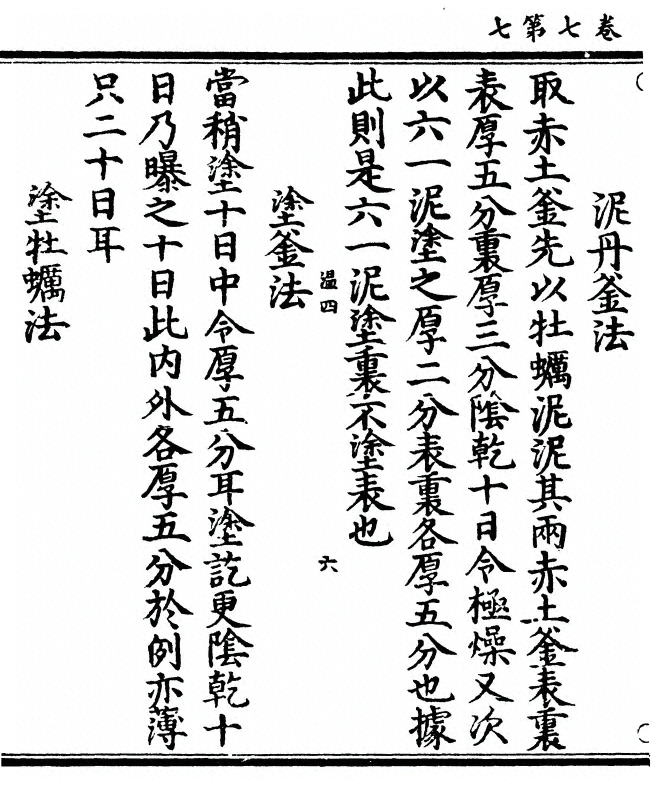 卷七第七
泥丹釜法
取赤土釜先以牡蠣泥泥其兩赤土釜表裏
表厚五分裏厚三分陰乾十日令極燥又次
以六一泥塗之厚二分表裏各厚五分也據
此則是六一泥塗裏不塗表也
溫四 六
塗釜法
當稍塗十日中令厚五分耳塗訖更陰乾十
日乃曝之十日此內外各厚五分於例亦薄
只二十日耳
塗牡蠣法